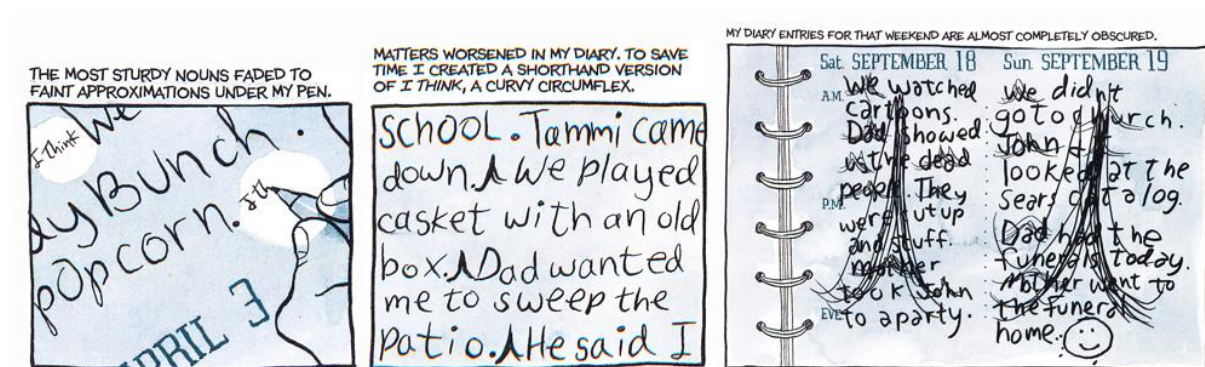 THE MOST STURDY NOUNS FADED TO
FAINT APPROXIMATIONS UNDER MY PEN.
I think
We
dy Bunch.
popcorn.
I th
APRIL 3
MATTERS WORSENED IN MY DIARY. TO SAVE
TIME I CREATED A SHORTHAND VERSION
OF I THINK, A CURVY CIRCUMFLEX.
SCHOOL. Tammi came
down. We played
casket with an old
box. Dad wanted
me to sweep the
patio. He said I
MY DIARY ENTRIES FOR THAT WEEKEND ARE ALMOST COMPLETELY OBSCURED.
Sat. SEPTEMBER 18
A.M.
We watched
cartoons.
Dad showed
us the dead
people. They
P.M.
were cut up
and stuff.
mother
took John
EVE
to a party.
Sun. SEPTEMBER 19
We didn't
go to church.
John +
looked at the
Sears catalog.
Dad had the
funerals today.
Mother went to
the funeral
home.